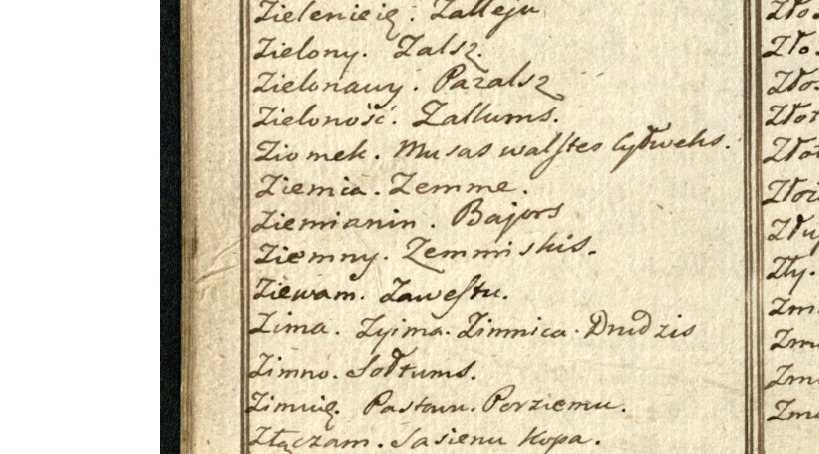 Zielenieię. Zalleju
Zielony. Zalsz.
Zielonawy. Pazalsz
Zieloność. Zallums.
Ziomek. Musas walstes cyłweks.
Ziemia. Zemme.
Ziemianin. Bajors
Ziemny. Zemmiskis.
Ziewam. Zawestu.
Zima. Zyima. Zimnica. Drudzis
Zimno. Sołtums.
Zimuię. Pastawu. Porziemu.
Złączam. Sasienu kopa.